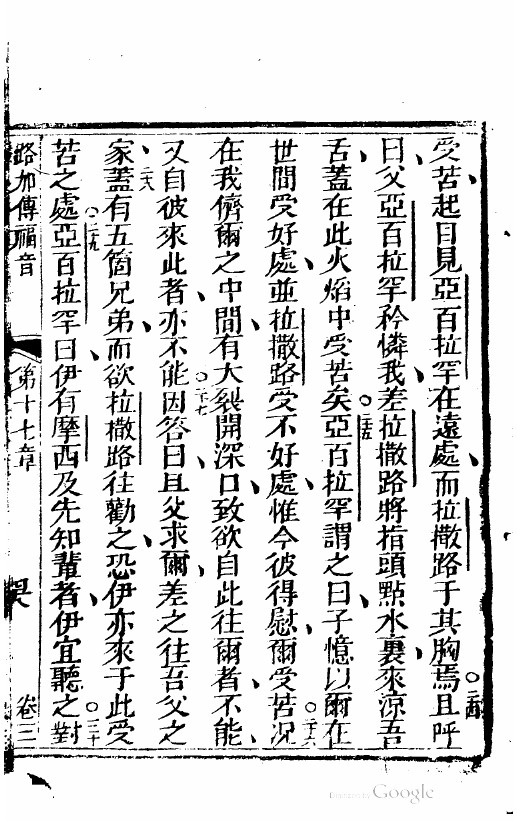 受苦起目見亞百拉罕在遠處而拉撒路于其胸焉○二四且呼
曰父亞百拉罕矜憐我差拉撒路將指頭點水裏來涼吾
舌蓋在此火焰中受苦矣○二五亞百拉罕謂之曰子憶以爾在
世間受好處並拉撒路受不好處惟今彼得慰爾受苦○二六况
在我儕爾之中間有大裂開深口致欲自此往爾者不能
又自彼來此者亦不能○二七因答曰且父求爾差之往吾父之
家○二八蓋有五箇兄弟而欲拉撒路往勸之恐伊亦來于此受
苦之處○二九亞百拉罕曰伊有摩西及先知輩者伊宜聽之○三十對
路加傳福音
第十七章
卷三
Digitized by Google